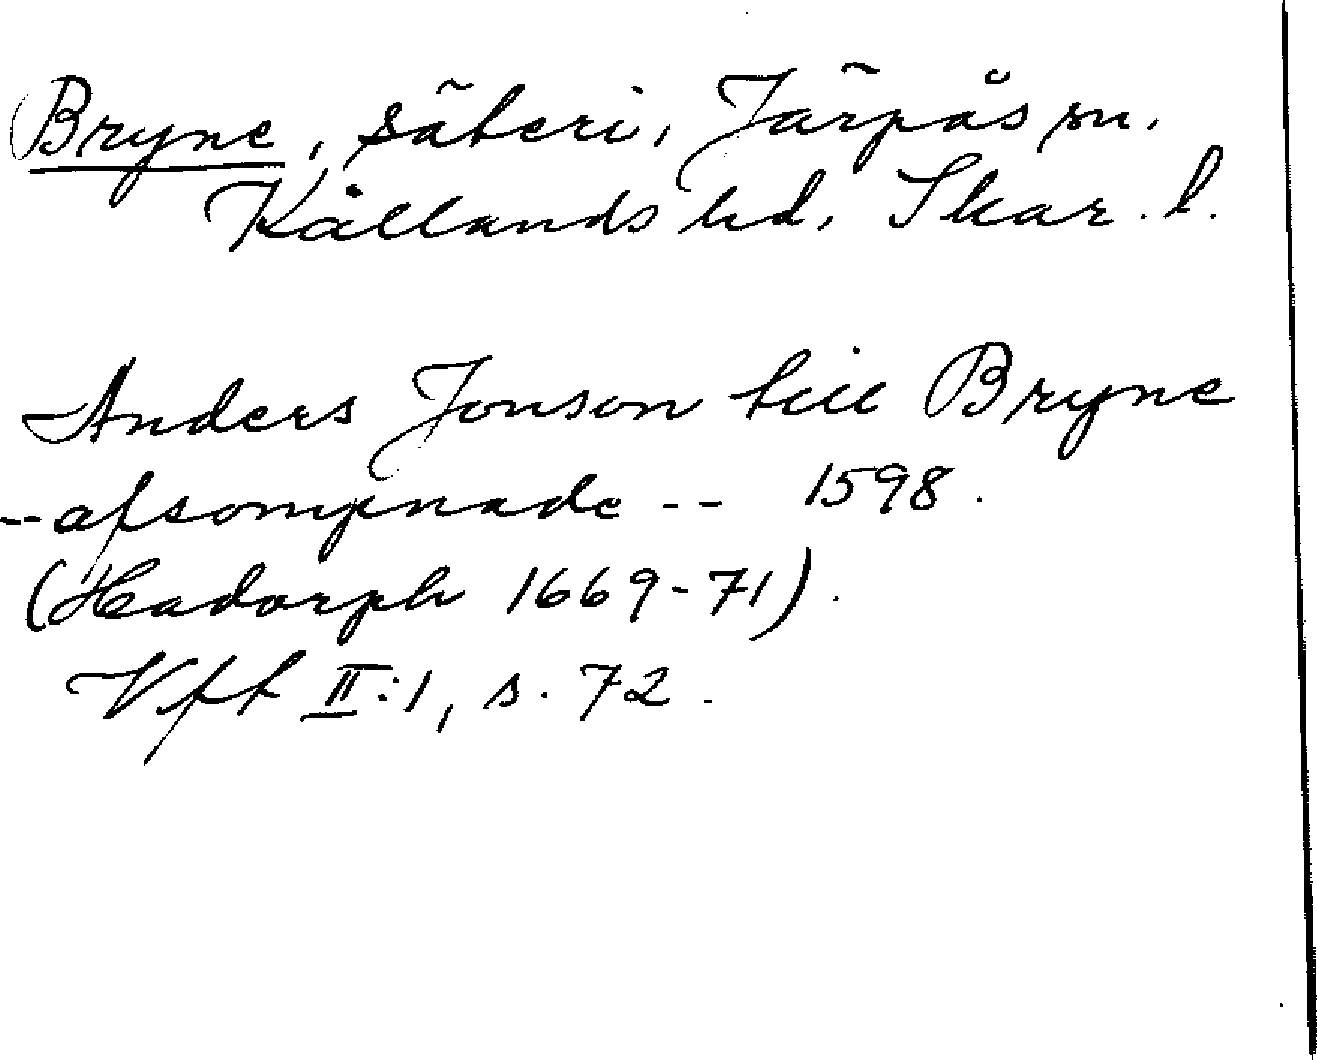 Bryne, säteri, Järpås sn.
Kållands hd, Skar. l.
Anders Jonson till Bryne
-- afsompnade -- 1598.
(Hadorph 1669-71).
Vff II:1, s. 72.